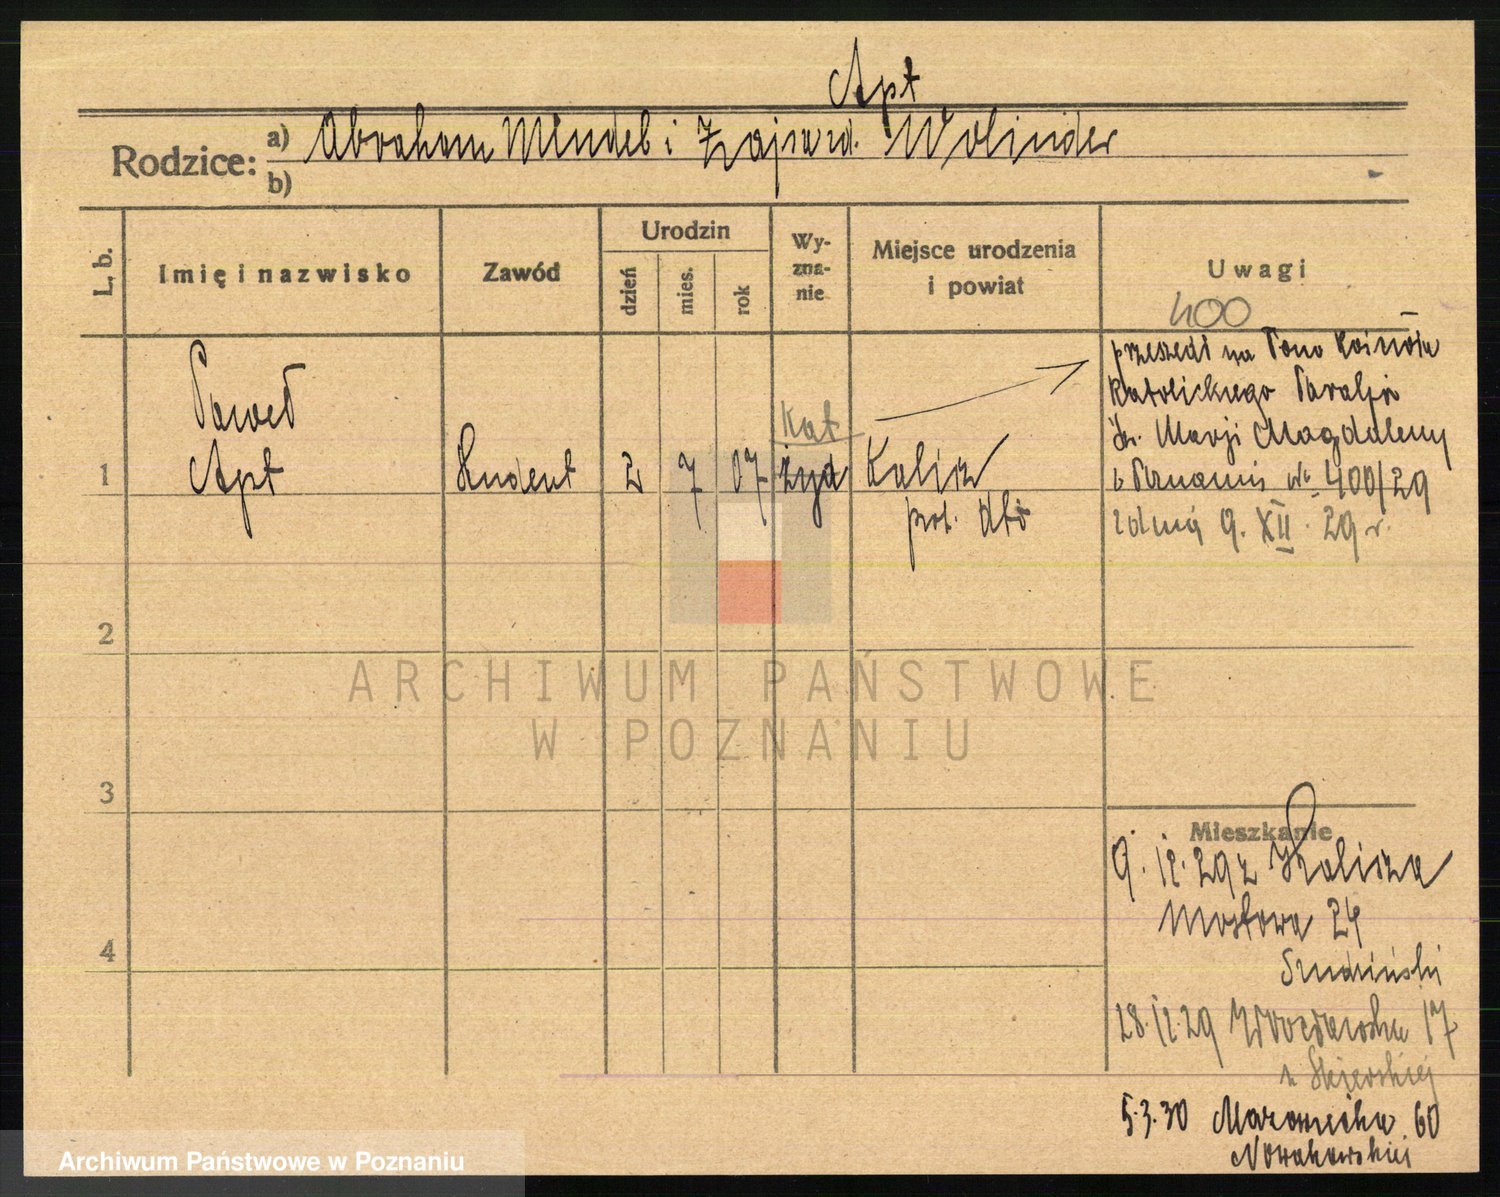 Apt
Rodzice: a) Abraham Mendel i Zajsa rd. Wolinder
b)
L. b.
Imię i nazwisko
Zawód
Urodzin
dzień
mies.
rok
Wy-
zna-
nie
Miejsce urodzenia
i powiat
Uwagi
400
1
Paweł
Apt
Student
2
7
07
Kat
żyd
Kalisz
pow. dto
przeszedł na łono Kościoła
Katolickiego Parafja
św. Marji Magdaleny
w Poznaniu Nr 400/29
z dnia 9. XII. 29 r.
2
3
4
Mieszkanie
9.12.29 z Kalisza
Mostowa 24
28.12.29 17
5.3.30 Mazowiecka 60
Nowakowskiej
ARCHIWUM PAŃSTWOWE
W POZNANIU
Archiwum Państwowe w Poznaniu